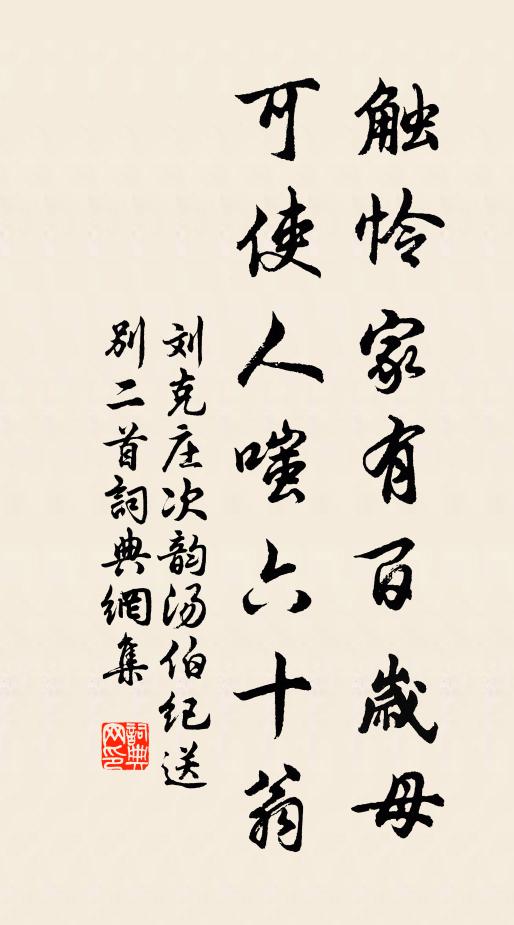 触怜家有百歲母
可使人嗤六十翁
刘克庄次韵汤伯纪送
别二首詞典網集
詞典
网印